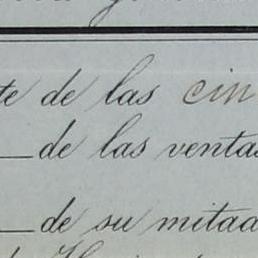 te de las cin
de las venta
de su mitad